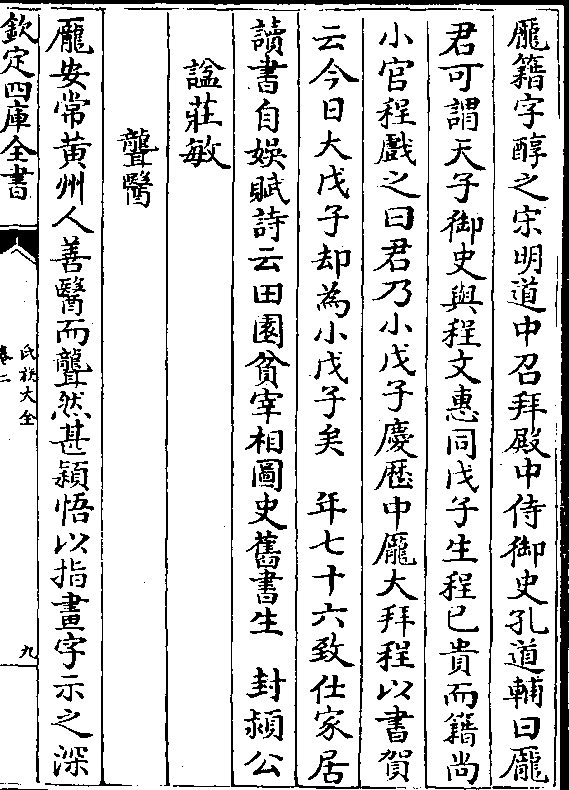 龎籍字醇之宋明道中召拜殿中侍御史孔道輔曰龎
君可謂天子御史與程文惠同戊子生程已貴而籍尚
小官程戲之曰君乃小戊子慶歴中龎大拜程以書賀
云今日大戊子却為小戊子矣　年七十六致仕家居
讀書自娯賦詩云田園貧宰相圖史舊書生　封潁公
諡莊敏
聾醫
龎安常黄州人善醫而聾然甚潁悟以指畫字示之深
欽定四庫全書
氏族大全
卷二
九